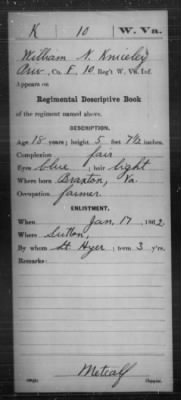 K 10 W. Va.
William N. Knicely
Priv, Co. F, 10 Reg't W. Va. Inf.
Appears on
Regimental Descriptive Book
of the regiment named above.
DESCRIPTION.
Age 18 years; height 5 feet 7½ inches.
Complexion fair
Eyes blue; hair light
Where born Braxton, Va.
Occupation farmer
ENLISTMENT.
When Jan. 17, 1862
Where Sutton,
By whom Lt Hyer; term 3 y'rs.
Remarks:
Metcalf
Copyist.